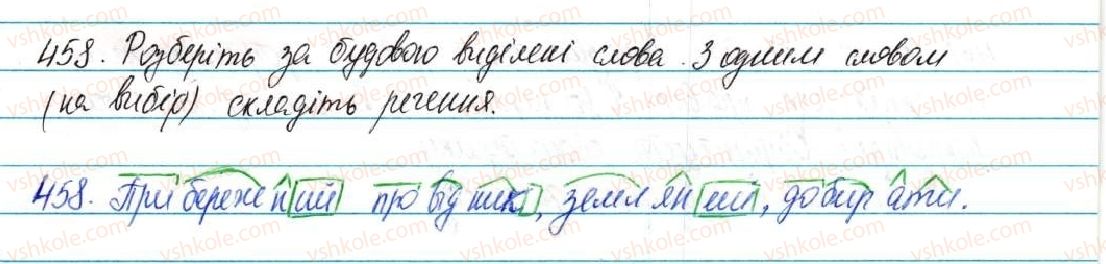 458. Розберіть за будовою виділені слова. З одним словом
(на вибір) складіть речення.
458. Прибережний провідник, земляний, добирати.